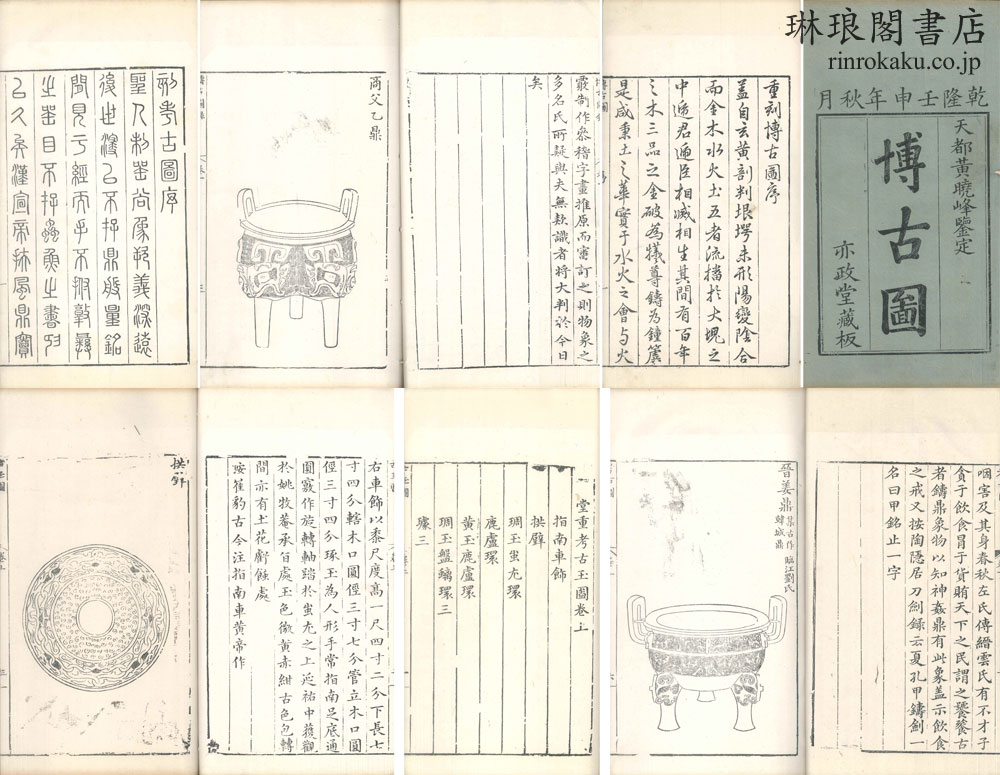 琳琅閣書店
rinrokaku.co.jp
乾隆壬申年秋月
天都黃曉峰鑒定
博古圖
亦政堂藏板
重刻博古圖序
蓋自玄黃剖判垠堮未形陽變陰合
而金木水火土五者流擋於大塊之
中遞君遞臣相滅相生其間有百年
之木三品之金破為犧尊鑄為鐘簴
是咸秉土之華實于水火之會与火
覈制作叅稽字畫推原而審訂之則物象之
多名氏所疑與夫無欵識者將大判於今日
矣
商父乙鼎
刻考古圖序
聖人制器尚象起義深遠
後世寖以不存鼎殷量銘
間見于經而
咽害及其身春秋左氏傳縉雲氏有不才子
貪于飲食冒于貨賄天下之民謂之饕餮古
者鑄鼎象物以知神姦鼎有此象蓋示飲食
之戒又按陶隱居刀劍錄云夏孔甲鑄劍一
名曰甲銘止一字
晉姜鼎 集古作韓城鼎 臨江劉氏
堂重考古玉圖卷上
指南車飾
拱璧
琱玉蚩尤環
鹿盧環
黃玉鹿盧環
琱玉盤螭環三
璩三
右車飾以黍尺度高一尺四寸二分下長七
寸四分轄木口圓徑三寸七分管立木口圓
徑三寸四分琢玉為人形手常指南足底通
圓竅作旋轉軸踏於蚩尤之上延祐中獲觀
於姚牧菴承旨處玉色微黃赤紺古色包轉
間亦有土花虧蝕處
按崔豹古今注指南車黃帝作
拱璧